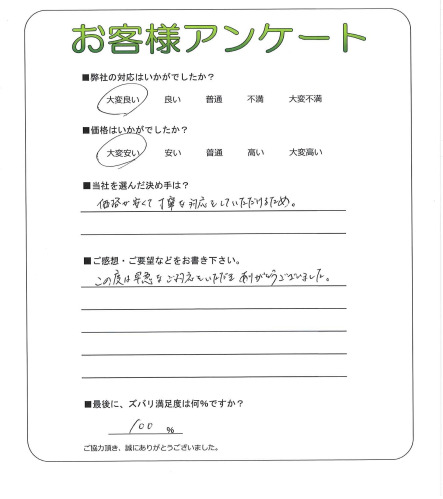 お客様アンケート
■弊社の対応はいかがでしたか？
大変良い 良い 普通 不満 大変不満
■価格はいかがでしたか？
大変安い 安い 普通 高い 大変高い
■当社を選んだ決め手は？
価格が安くて丁寧な対応をしていただけるため。
■ご感想・ご要望などをお書き下さい。
この度は早急なご対応をいただき ありがとうございました。
■最後に、ズバリ満足度は何%ですか？
100 %
ご協力頂き、誠にありがとうございました。